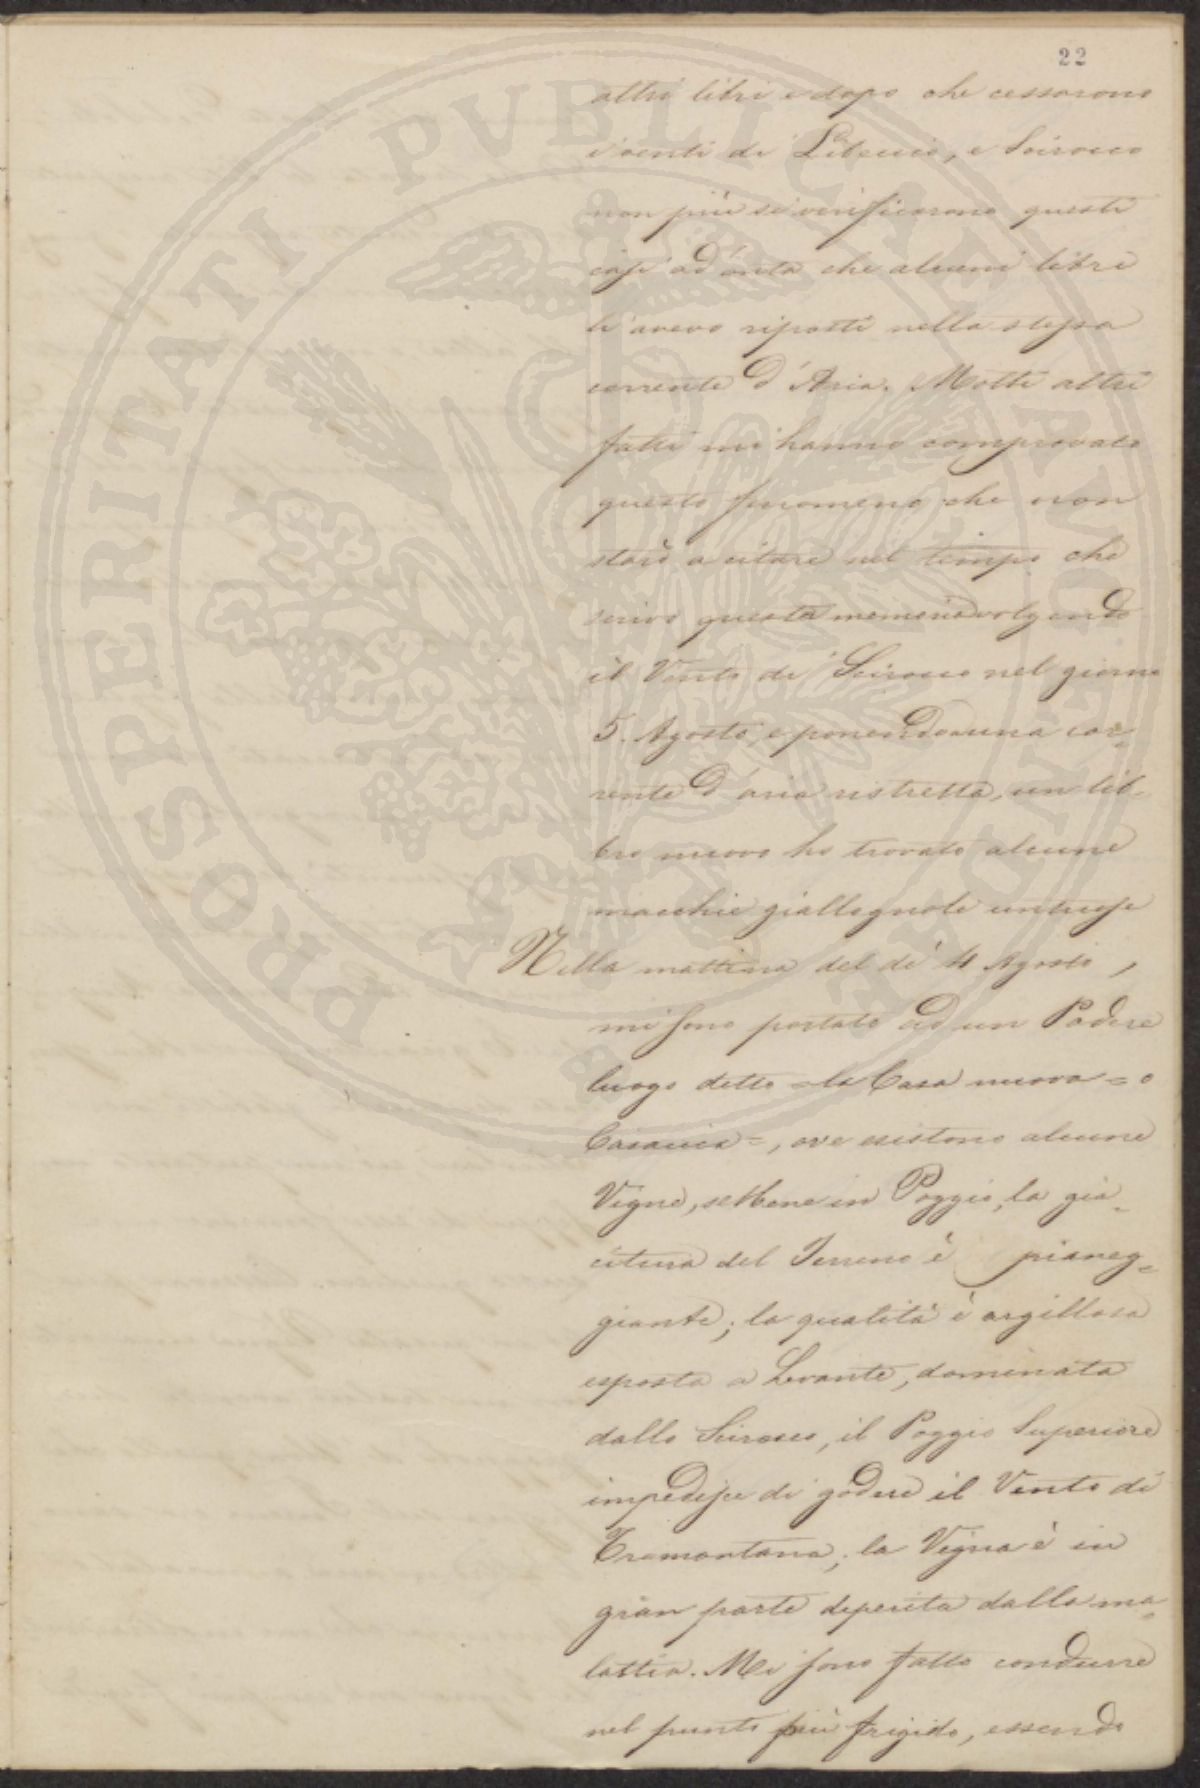 22
altri libri e dopo che cessarono
i venti di Libeccio, e Scirocco
non più si verificarono questi
casi ad onta che alcuni libri
li avevo riposti nella stessa
corrente d'Aria. Molti altri
fatti mi hanno comprovato
questo fenomeno che non
starò a citare nel tempo che
scrivo questa memoria volgendo
il Vento di Scirocco nel giorno
5. Agosto, e ponendo a una cor=
rente d'aria ristretta, un lib=
bro nuovo ho trovato alcune
macchie giallognole untuose
Nella mattina del dì 4 Agosto,
mi sono portato ad un Podere
luogo detto = la Casa nuova = o
Casaccia =, ove esistono alcune
Vigne, sebbene in Poggio, la gia=
citura del Terreno è pianeg=
giante; la qualità è argillosa
esposta a Levante, dominata
dallo Scirocco, il Poggio Superiore
impedisce di godere il Vento di
Tramontana; la Vigna è in
gran parte deperita dalla ma=
lattia. Mi sono fatto condurre
nel punto più frigido, essendo
PROSPERITATI PVBLICAE AVGENDAE